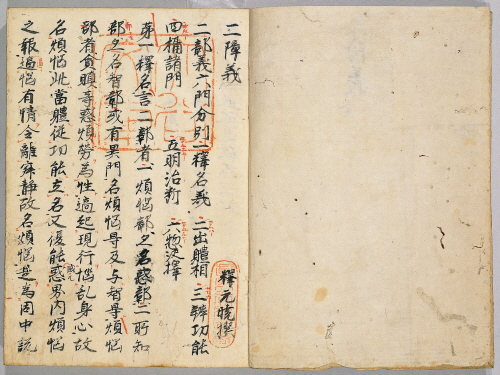 二障義
釋元曉撰
二部義六門分別一釋名義 二出體相 三辨功能
四攝諸門 五明治斷 六惣決擇
第一釋名言二部者一煩惱部亦名惑部二所知
部亦名智部或有異門名煩惱尋及与智尋煩惱
部者貪瞋等惑煩勞為性適起現行惱乱身心故
名煩惱此當體從功能立名又復能惑界內煩惱
之報逼惱有情令離寂靜故名煩惱是為因中說